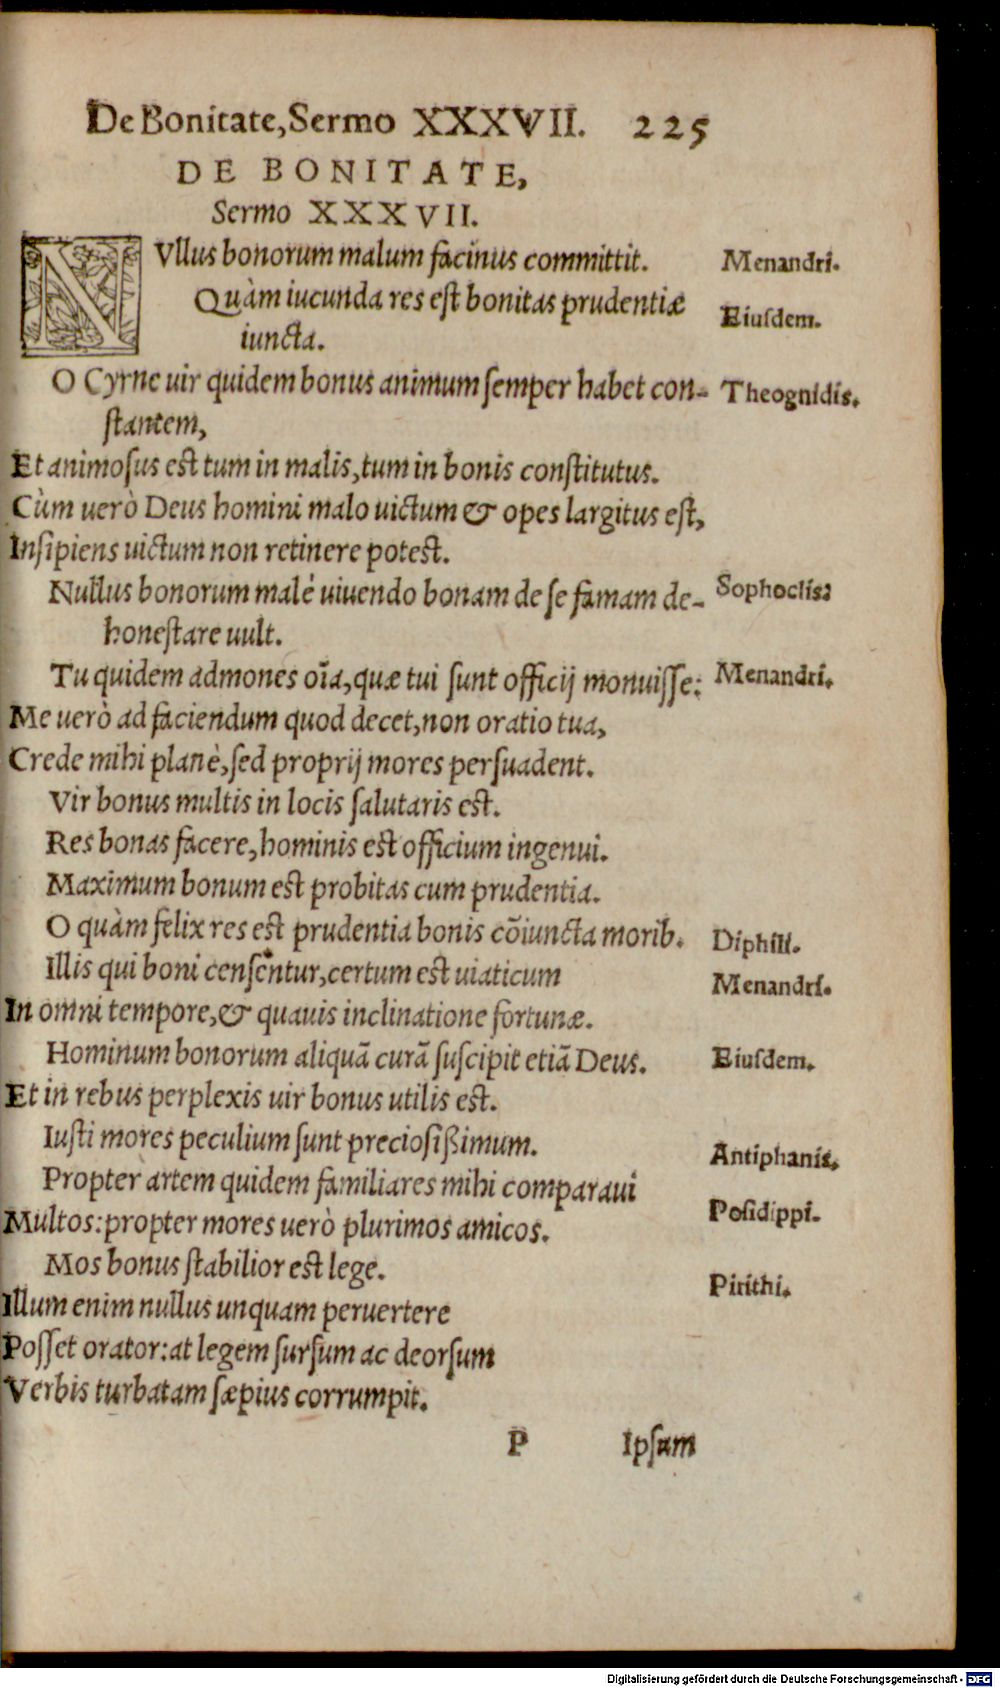 De Bonitate, Sermo XXXVII. 225
DE BONITATE,
Sermo XXXVII.
NVllus bonorum malum facinus committit. Menandri.
Quàm iucunda res est bonitas prudentiæ Eiusdem.
iuncta.
O Cyrne uir quidem bonus animum semper habet con- Theognidis.
stantem,
Et animosus est tum in malis, tum in bonis constitutus.
Cùm uerò Deus homini malo uictum & opes largitus est,
Insipiens uictum non retinere potest.
Nullus bonorum malè uiuendo bonam de se famam de- Sophoclis:
honestare uult.
Tu quidem admones oīa, quæ tui sunt officij monuisse: Menandri.
Me uerò ad faciendum quod decet, non oratio tua,
Crede mihi planè, sed proprij mores persuadent.
Vir bonus multis in locis salutaris est.
Res bonas facere, hominis est officium ingenui.
Maximum bonum est probitas cum prudentia.
O quàm felix res est prudentia bonis cōiuncta morib. Diphili.
Illis qui boni censentur, certum est uiaticum Menandri.
In omni tempore, & quauis inclinatione fortunæ.
Hominum bonorum aliquā curā suscipit etiā Deus. Eiusdem.
Et in rebus perplexis uir bonus utilis est.
Iusti mores peculium sunt preciosißimum. Antiphanis.
Propter artem quidem familiares mihi comparaui Posidippi.
Multos: propter mores uerò plurimos amicos.
Mos bonus stabilior est lege. Pirithi.
Illum enim nullus unquam peruertere
Posset orator: at legem sursum ac deorsum
Verbis turbatam sæpius corrumpit.
P Ipsum
Digitalisierung gefördert durch die Deutsche Forschungsgemeinschaft - DFG